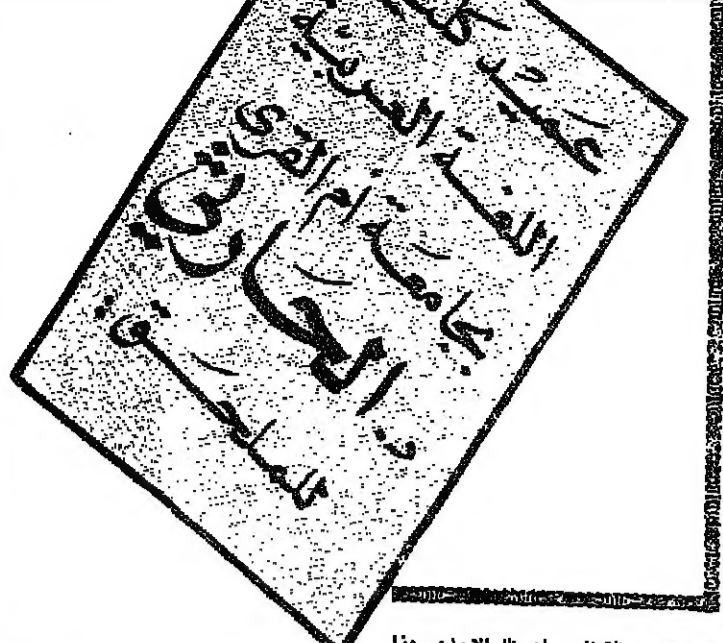 عميد كلية
اللغة العربية
بجامعة أم القرى
د. الحارثي
للملحق